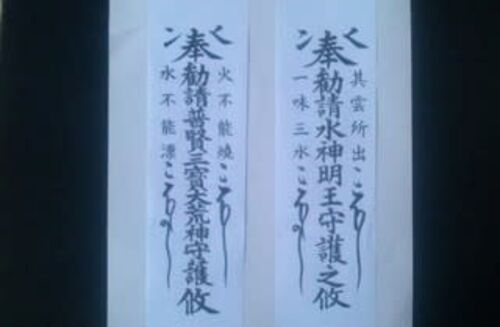 其雲所出
奉勧請水神明王守護之攸
一味三水
火不能燒
奉勧請普賢三寶大荒神守護攸
水不能漂